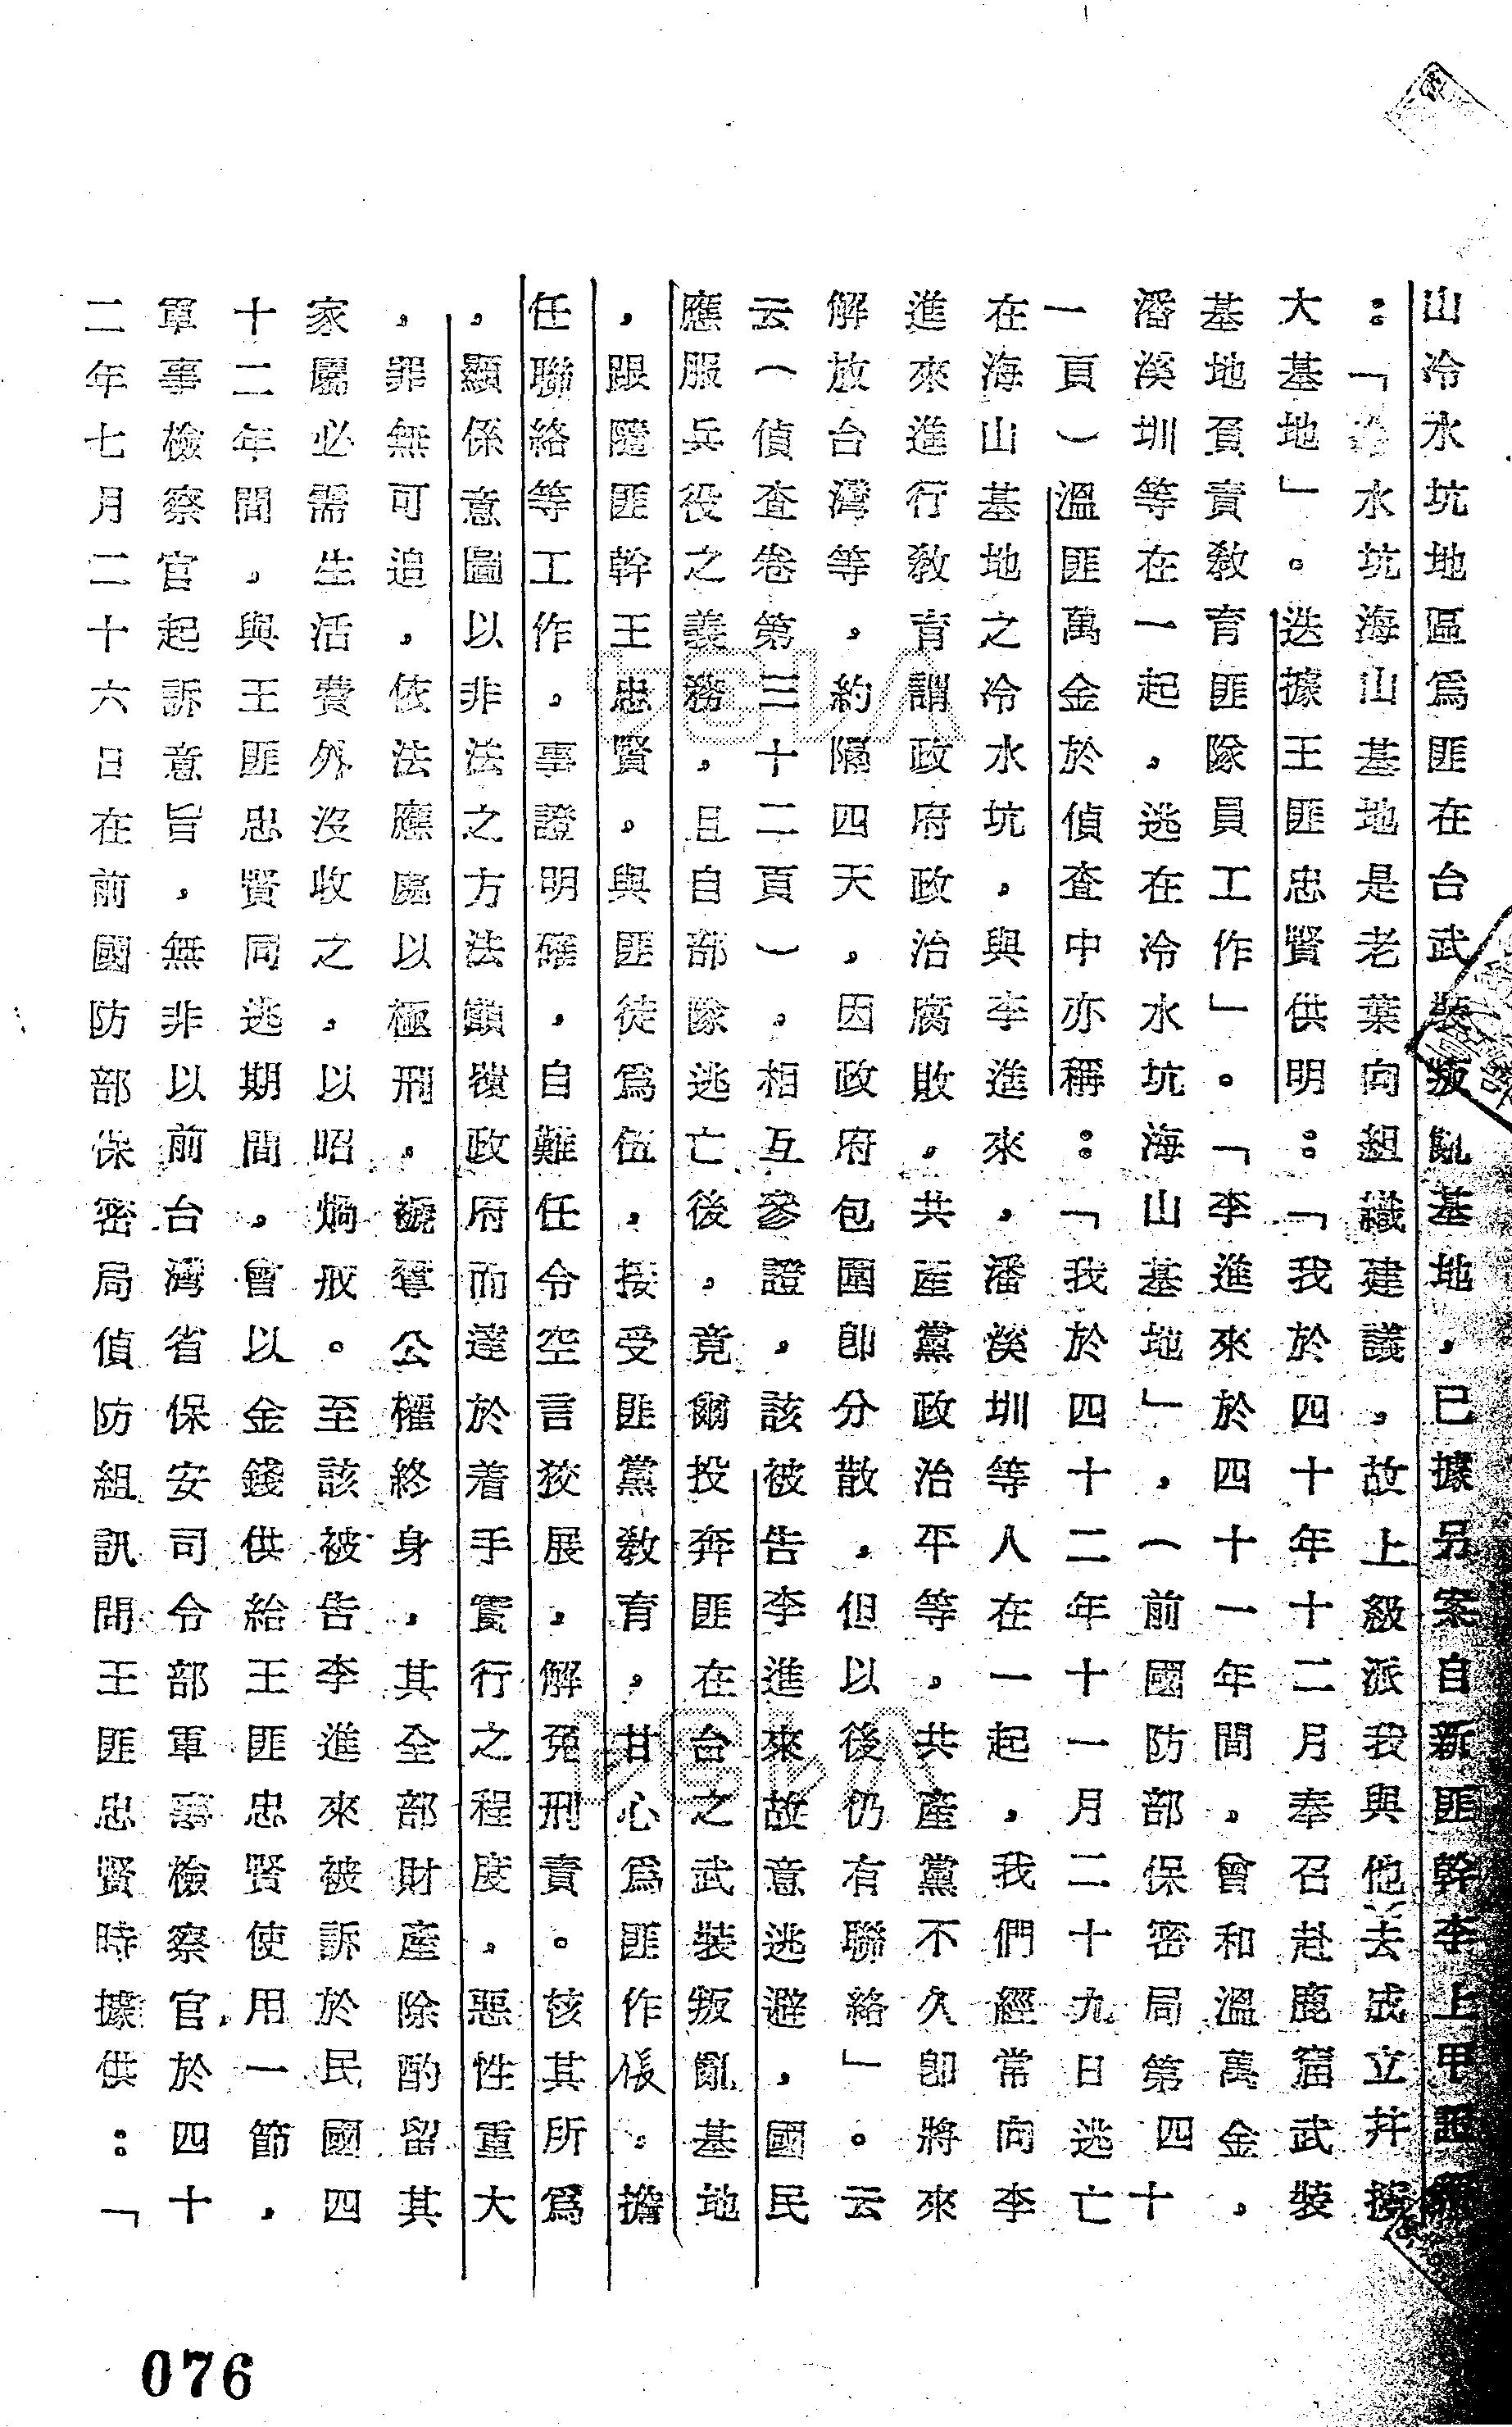 山冷水坑地區爲匪在台武裝叛亂基地，已據另案自新匪幹李上甲證
：「水坑海山基地是老葉向組織建議，故上級派我與他去成立并
大基地」。迭據王匪忠賢供明：「我於四十年十二月奉召赴鹿窟武裝
基地負責教育匪隊員工作」。「李進來於四十一年間，曾和溫萬金，
潘溪圳等在一起，逃在冷水坑海山基地」，（前國防部保密局第四十
一頁）溫匪萬金於偵查中亦稱：「我於四十二年十一月二十九日逃亡
在海山基地之冷水坑，與李進來，潘溪圳等人在一起，我們經常向李
進來進行教育謂政府政治腐敗，共產黨政治平等，共產黨不久即將來
解放台灣等，約隔四天，因政府包圍即分散，但以後仍有聯絡」。云
云（偵查卷第三十二頁），相互參證，該被告李進來故意逃避，國民
應服兵役之義務，且自部隊逃亡後，竟爾投奔匪在台之武裝叛亂基地
，跟隨匪幹王忠賢。與匪徒爲伍，接受匪黨教育，甘心爲匪作倀。擔
任聯絡等工作。事證明確，自難任令空言狡展，解免刑責。該其所爲
，顯係意圖以非法之方法顛覆政府而達於着手實行之程度，惡性重大
，罪無可逭，依法應處以極刑，褫奪公權終身，其全部財產除酌留其
家屬必需生活費外沒收之，以昭烱戒。至該被告李進來被訴於民國四
十二年間，與王匪忠賢同逃期間，曾以金錢供給王匪忠賢使用一節，
軍事檢察官起訴意旨，無非以前台灣省保安司令部軍事檢察官於四十
二年七月二十六日在前國防部保密局偵防組訊問王匪忠賢時據供：「
076